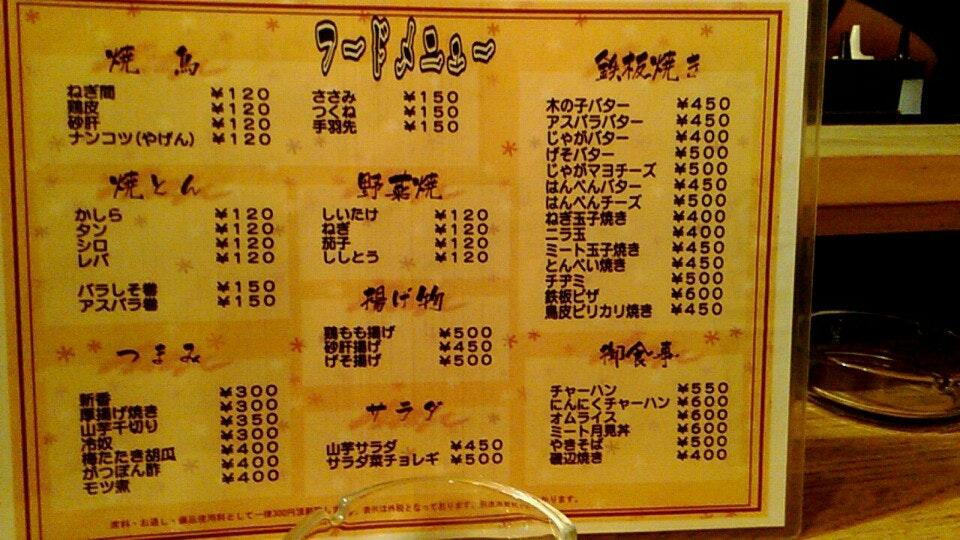 フードメニュー
焼鳥
ねぎ間 ¥120
鶏皮 ¥120
砂肝 ¥120
ナンコツ(やげん) ¥120
ささみ ¥150
つくね ¥150
手羽先 ¥150
焼とん
かしら ¥120
タン ¥120
シロ ¥120
レバ ¥120
バラしそ巻 ¥150
アスパラ巻 ¥150
野菜焼
しいたけ ¥120
ねぎ ¥120
茄子 ¥120
ししとう ¥120
揚げ物
鶏もも揚げ ¥500
砂肝揚げ ¥450
げそ揚げ ¥500
つまみ
新香 ¥300
厚揚げ焼き ¥300
山芋千切り ¥350
冷奴 ¥300
梅たたき胡瓜 ¥400
がつぽん酢 ¥400
モツ煮 ¥400
サラダ
山芋サラダ ¥450
サラダ菜チョレギ ¥500
鉄板焼き
木の子バター ¥450
アスパラバター ¥450
じゃがバター ¥400
げそバター ¥500
じゃがマヨチーズ ¥500
はんぺんバター ¥450
はんぺんチーズ ¥500
ねぎ玉子焼き ¥400
ニラ玉 ¥400
ミート玉子焼き ¥450
とんぺい焼き ¥450
チヂミ ¥500
鉄板ピザ ¥600
鳥皮ピリカリ焼き ¥450
御食事
チャーハン ¥550
にんにくチャーハン ¥600
オムライス ¥600
ミート月見丼 ¥600
やきそば ¥500
磯辺焼き ¥400
席料・お通し・備品使用料として一律300円頂戴
表示は外税となっております。